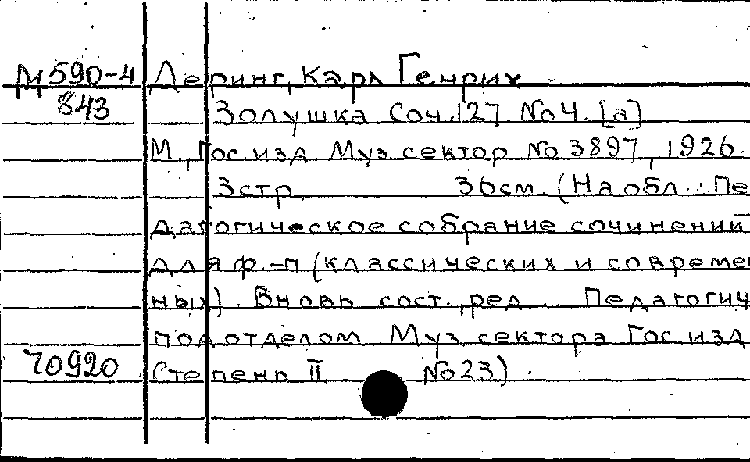 М590-4 Деринг, Карл Генрих
843 Золушка Соч. 127 No4. [а]
М., Гос.изд. Муз.сектор No 3897, 1926.
3стр. 36см. (На обл.: Пе
дагогическое собрание сочинений
для ф.-п (классических и совреме
ных). Вновь сост., ред. Педагогич
подотделом Муз.сектора Гос.изд
70920 Степень II No23).